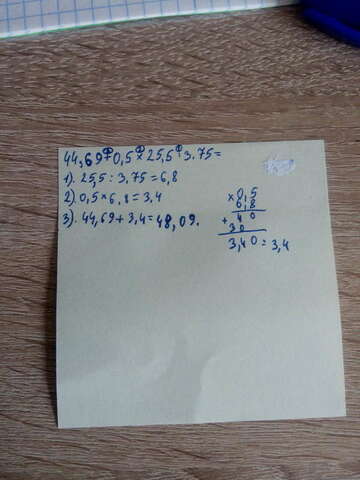 44,69+0,5×25,5:3.75=
1). 25,5:3,75=6,8
2). 0,5×6,8=3,4
3). 44,69+3,4=48,09.
×0,5
6,8
+40
30
3,40=3,4